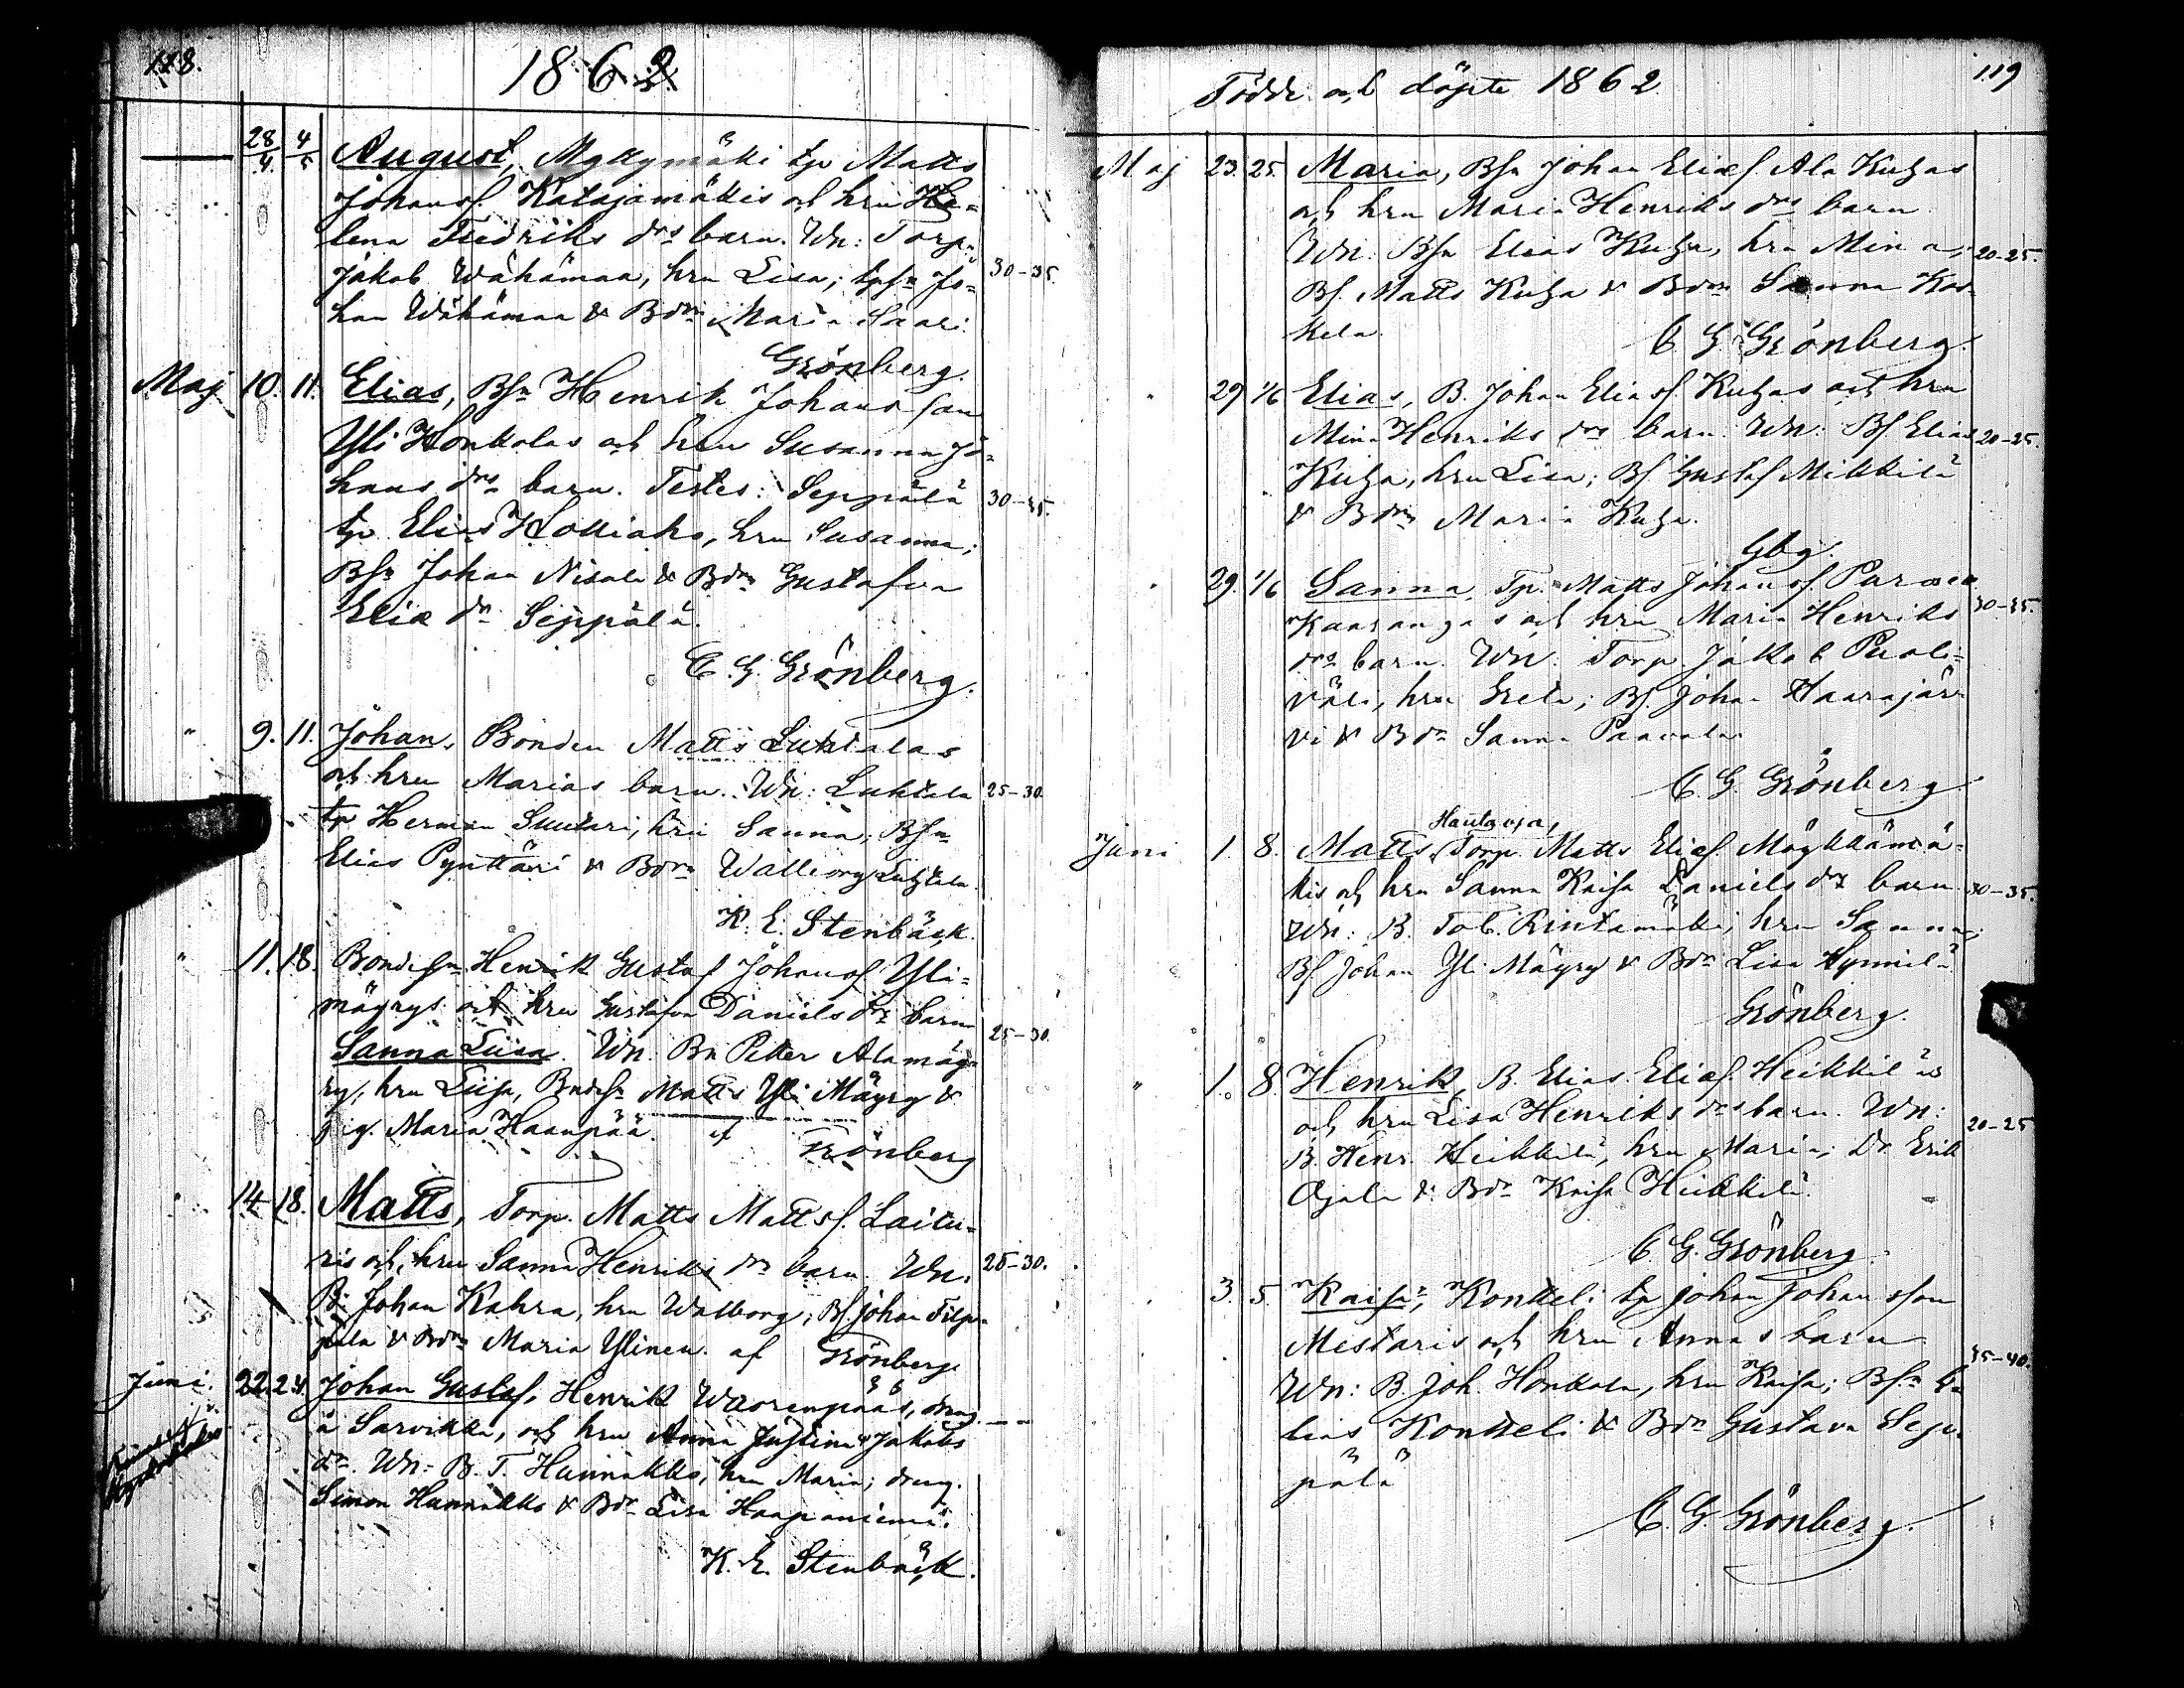 118.
1862.
28/4 4/5 August, Mykkymäki tp Matts
Johansf. Katajamäkis och hru He=
lena Fredriks drs barn. Wn: Torp.
Jakob Wähämaa, hru Lisa; tpsn Jo= 30-35.
han Wähämaa & Bdrn Maria Saari.
Grönberg.
Maj 10. 11. Elias, Bsn Henrik Johans son
Yli Honkolas och hru Susanna Jo=
hans drs barn. Testes: Seppälä 30-35.
tp Elias Kolliaho, hru Susanna;
Bsn Johan Nisula & Bdrn Gustafva
Eliæ dr Seppälä.
C. G. Grönberg.
" 9. 11. Johan, Bonden Matts Luhtalas
och hru Marias barn. Wn: Luhtala 25-30.
tp Herman Suutari, hru Sanna; Bsn
Elias Pynttäri & Bdrn Walborg Luhtala.
K. E. Stenbäck.
" 11. 18. Bondesn Henrik Gustaf Johansf. Yli=
mäyrys och hru Gustafva Daniels drs barn
Sanna Liisa. Wn. Bn Petter Alamäy= 25-30.
ry, hru Liisa, Bndesn Matts Yli Mäyry &
pig. Maria Haanpää. af Grönberg
" 14. 18. Matts, Torp. Matts Mattsf. Laitu=
ris och hru Sanna Henriks drs barn. Wn. 25-30.
B. Johan Kahra, hru Walborg; Bf. Johan Filp=
pula & Bdrn Maria Ylinen. af Grönberg
Juni. 22. 24. Johan Gustaf, Henrik Waorenpääs, dräng
å Sarvikka, och hru Anna Justina Jakobs
dr. Wn: B. T. Hannukko, hru Maria; dreng.
Simon Hannukko & Bdr Lisa Haapaniemi.
K. E. Stenbäck.
Födde och döpte 1862
119
Maj 23. 25. Maria, Bsn Johan Eliæf. Ala Kuhas
och hru Maria Henriks drs barn
Wn: Bsn Elias Kuha, hru Mina; 20-25.
Bf. Matts Kuha & Bdrn Sanna Kos=
kela.
C. G. Grönberg.
" 29 1/6 Elias, B. Johan Eliasf. Kuhas och hru
Mina Henriks drs barn. Wn: Bf Elias 20-25.
Kuha, hru Lisa; Bf Gustaf Mikkilä
& Bdrn Maria Kuha.
Gbg.
" 29. 1/6 Sanna, Tp. Matts Johansf.
Kaarangas och hru Maria Henriks 30-35.
drs barn. Wn. Torp. Jakob Puoli=
väli, hru Greta; Bf. Johan Haarajär=
vi & Bdr Sanna Paavola.
C. G. Grönberg
Hautaoja,
Juni 1. 8. Matts, Torp. Matts Eliæf. Mäykkämä=
kis och hru Sanna Kaisa Daniels drs barn 30-35.
Wn: B. Tob. Rintamäki, hru Sanna;
Bf Johan Yli Mäyry & Bdr Lisa Hymilä
Grönberg.
" 1. 8. Henrik, B. Elias Eliæf. Heikkiläs
och hru Lisa Henriks drs barn. Wn:
B. Henr. Heikkilä, hru Maria; Dr. Erik 20-25
Ojala & Bdr Kaisa Heikkilä.
C. G. Grönberg.
" 3. 5. Kaisa, Kontteli tp Johan Johansson
Mestaris och hru Annas barn
Wn: B. Joh. Honkola, hru Kaisa; Bsn E= 35-40.
lias Kontteli & Bdr Gustava Sep=
pälä
C. G. Grönberg.